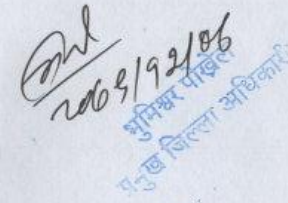 २०६९/१२/०६
भुमिश्वर पोख्रेल
प्रमुख जिल्ला अधिकारी